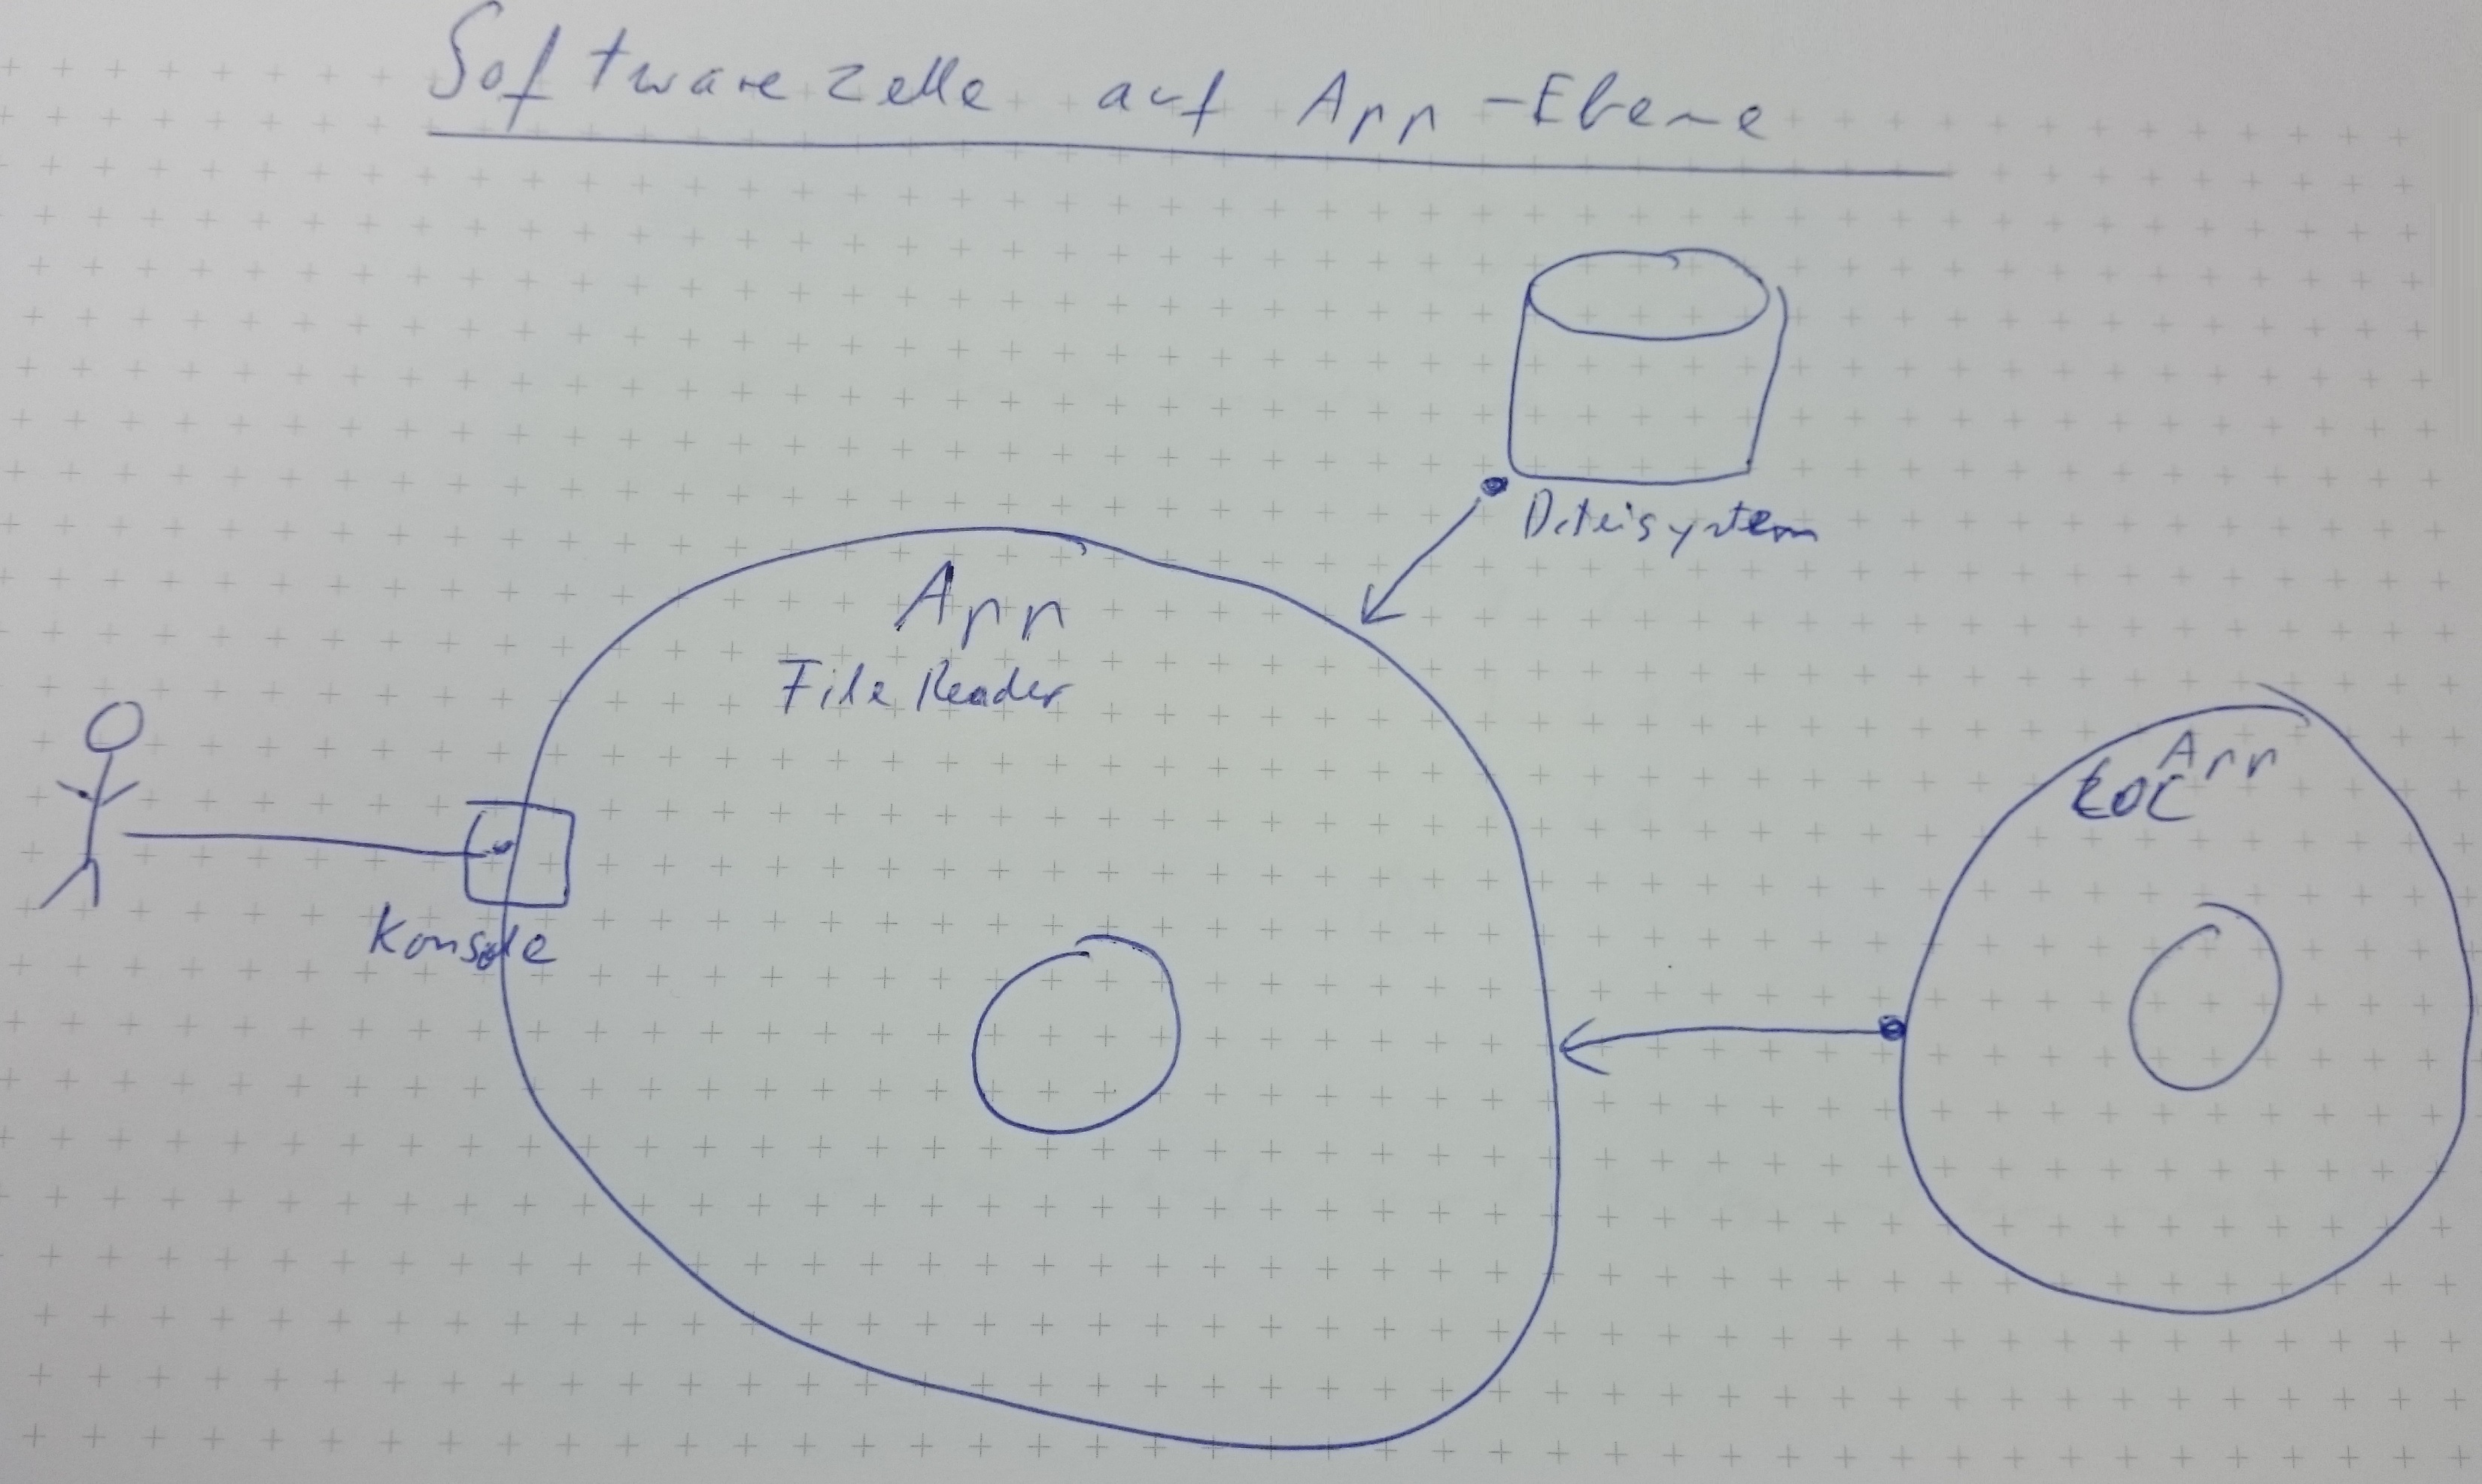 Softwarezelle auf App-Ebene
Dateisystem
App
File Reader
App
Konsole